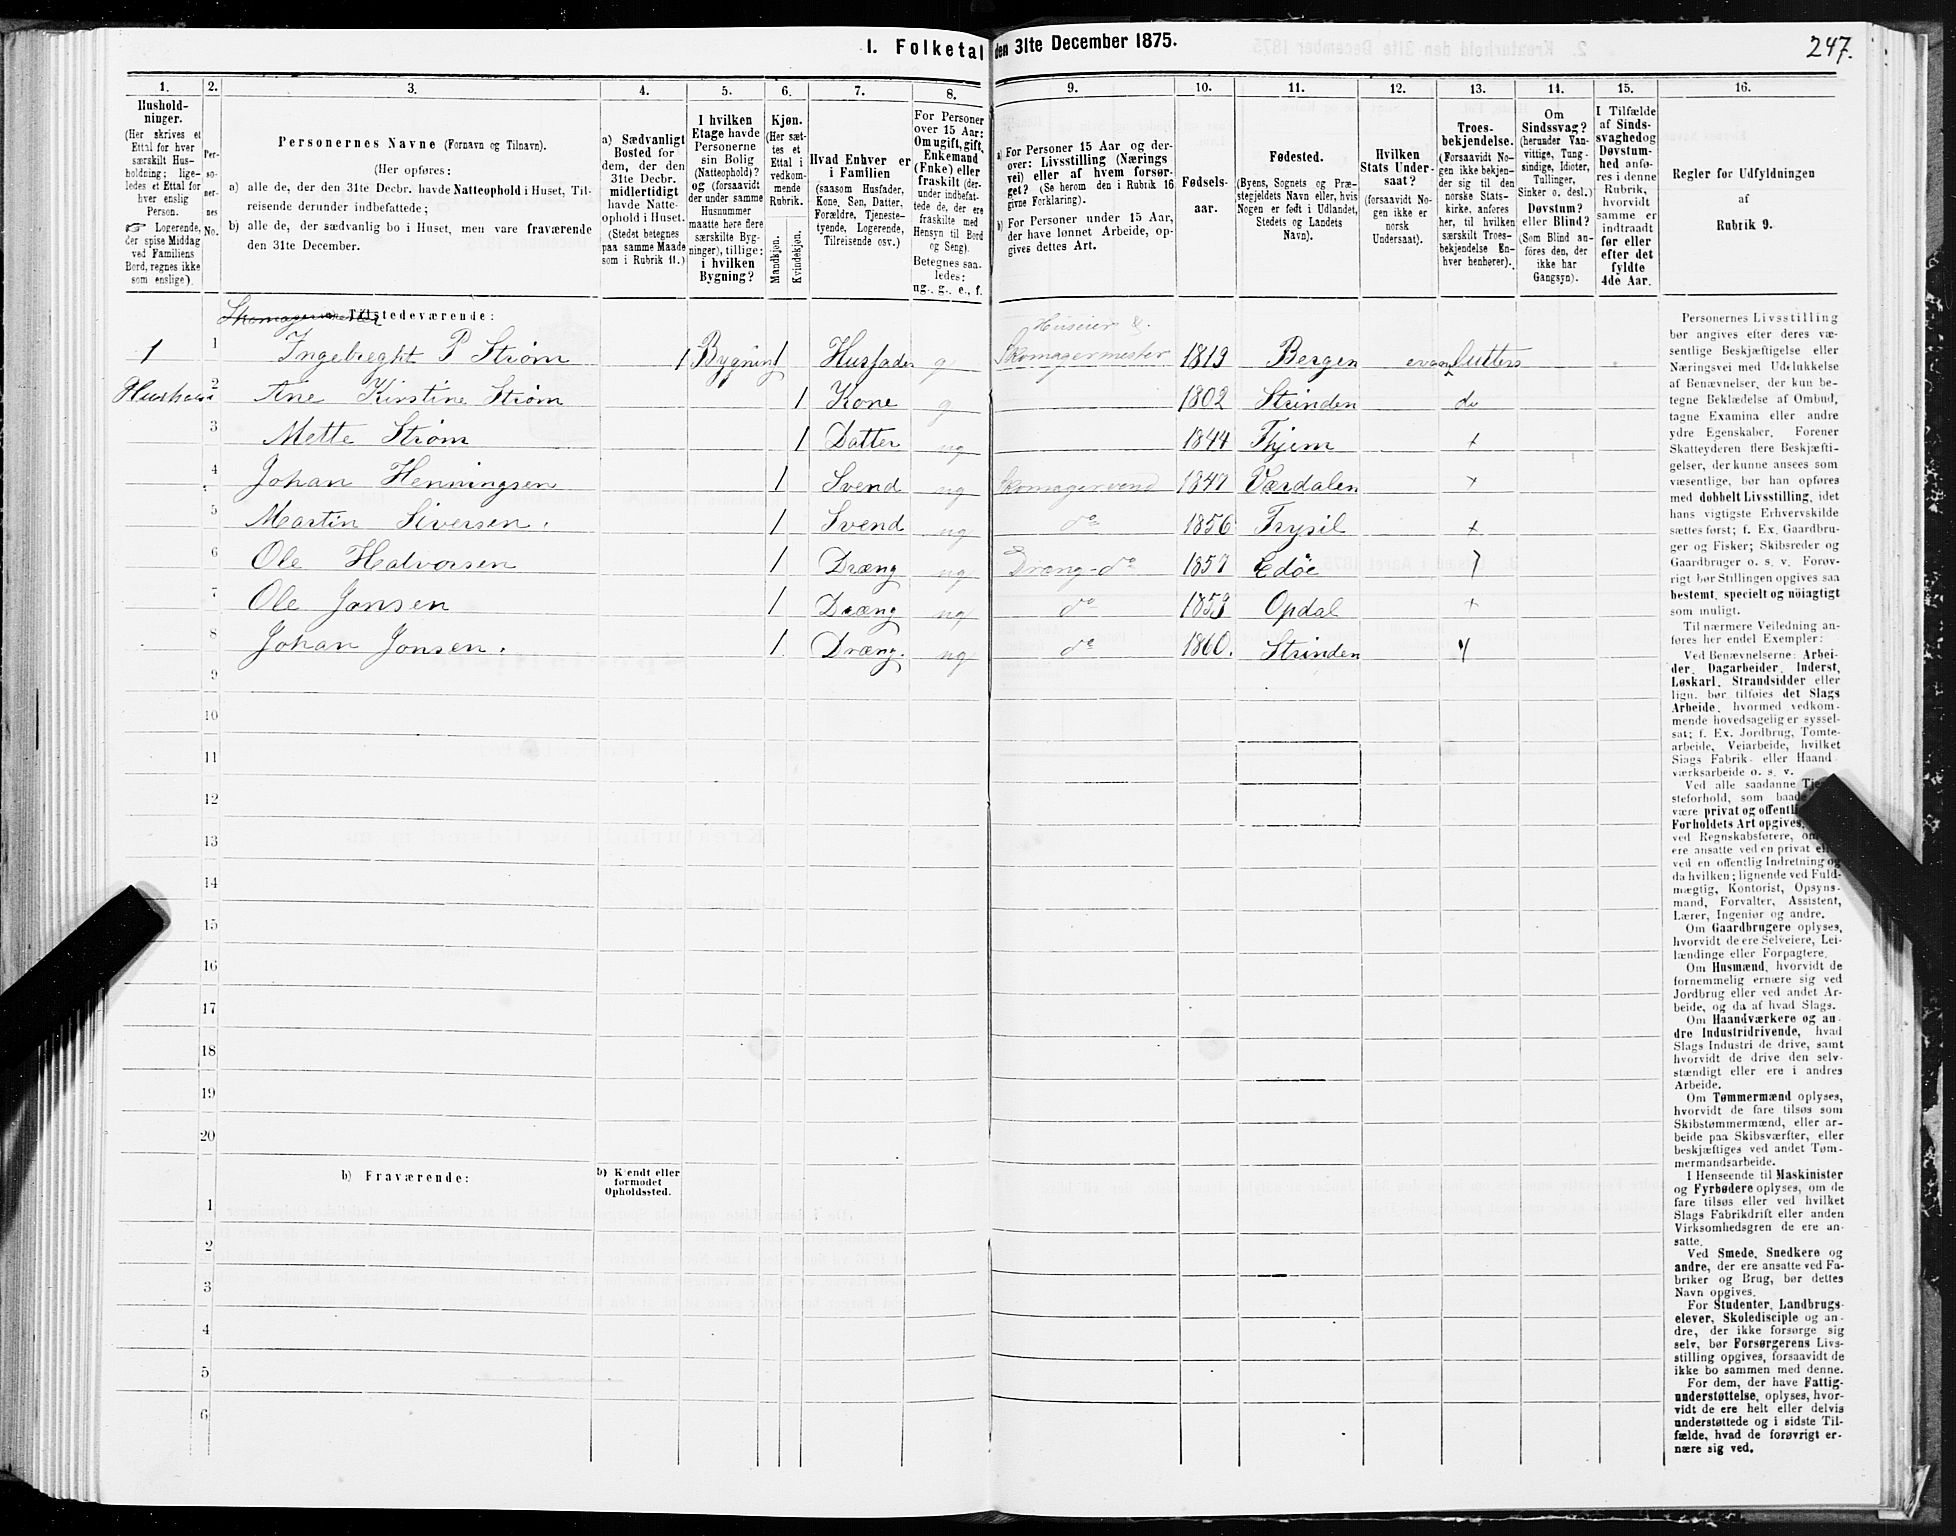 I. Folketal den 31te December 1875.
247.
1. 2. 3. 4. 5. 6. 7. 8. 9. 10. 11. 12. 13. 14. 15. 16.
Hushold-
ninger.
(Her skrives et
Ettal for hver
særskilt Hus-
holdning; lige-
ledes et Ettal for
hver enslig
Person.
☞ Logerende,
der spise Middag
ved Familiens
Bord, regnes ikke
som enslige).
Per-
so-
ner-
nes
No.
Personernes Navne (Fornavn og Tilnavn).
(Her opføres:
a) alle de, der den 31te Decbr. havde Natteophold i Huset, Til-
reisende derunder indbefattede;
b) alle de, der sædvanlig bo i Huset, men vare fraværende
den 31te December.
a) Sædvanligt
Bosted for
dem, der den
31te Decbr.
midlertidigt
havde Natte-
ophold i Huset.
(Stedet betegnes
paa samme Maade
som i Rubrik 11.)
I hvilken
Etage havde
Personerne
sin Bolig
(Natteophold)?
og (forsaavidt
der under samme
Husnummer
maatte høre flere
særskilte Byg-
ninger), tillige:
i hvilken
Bygning?
Kjøn.
(Her sæt-
tes et
Ettal i
vedkom-
mende
Rubrik.
Mandkjøn.
Kvindekjøn.
Hvad Enhver er
i Familien
(saasom Husfader,
Kone, Søn, Datter,
Forældre, Tjeneste-
tyende, Logerende,
Tilreisende osv.)
For Personer
over 15 Aar:
Om ugift, gift,
Enkemand
(Enke) eller
fraskilt (der-
under indbefat-
tede de, der ere
fraskilte med
Hensyn til Bord
og Seng).
Betegnes saa-
ledes:
ug., g., e., f.
a) For Personer 15 Aar og der-
over: Livsstilling (Nærings-
vei) eller af hvem forsør-
get? (Se herom den i Rubrik 16
givne Forklaring).
b) For Personer under 15 Aar,
der have lønnet Arbeide, op-
gives dettes Art.
Fødsels-
aar.
Fødested.
(Byens, Sognets og Præ-
stegjeldets Navn eller, hvis
Nogen er født i Udlandet,
Stedets og Landets
Navn).
Hvilken
Stats Under-
saat?
(forsaavidt No-
gen ikke er
norsk
Undersaat).
Troes-
bekjendelse.
(Forsaavidt No-
gen ikke bekjen-
der sig til den
norske Stats-
kirke, anføres
her, til hvilken
særskilt Troes-
bekjendelse En-
hver henhører).
Om
Sindssvag?
(herunder Van-
vittige, Tung-
sindige, Idioter,
Tullinger,
Sinker o. desl.)
Døvstum?
eller Blind?
(Som Blind an-
føres den, der
ikke har
Gangsyn).
I Tilfælde
af Sinds-
svaghed og
Døvstum-
hed anfø-
res i denne
Rubrik,
hvorvidt
samme er
indtraadt
før eller
efter det
fyldte
4de Aar.
Regler for Udfyldningen
af
Rubrik 9.
Tilstedeværende:
Huseier &
1 1 Ingebreght P Strøm 1 Bygning 1 Husfader g Skomagermester 1819 Bergen evan lutters
2 Ane Kirstine Strøm 1 Kone g 1802 Strinden do
3 Mette Strøm 1 Datter ug 1844 Thjem +
4 Johan Henningsen 1 Svend ug Skomagersvend 1847 Værdalen +
5 Martin Siversen. 1 Svend ug do 1856 Trysil +
6 Ole Halvorsen 1 Dræng ug Dræng-do 1857 Edøe
7 Ole Jonsen 1 Dræng ug do 1859 Opdal +
8 Johan Jonsen. 1 Dræng. ug do 1860. Strinden
9
10
11
12
13
14
15
16
17
18
19
20
b) Fraværende:
b) Kjendt eller
formodet
Opholdssted.
1
2
3
4
5
6
Personernes Livsstilling
bør angives efter deres væ-
sentlige Beskjæftigelse eller
Næringsvei med Udelukkelse
af Benævnelser, der kun be-
tegne Beklædelse af Ombud,
tagne Examina eller andre
ydre Egenskaber. Forener
Skatteyderen flere Beskjæfti-
gelser, der kunne ansees som
væsentlige, bør han opføres
med dobbelt Livsstilling, idet
hans vigtigste Erhvervskilde
sættes først; f. Ex. Gaardbru-
ger og Fisker; Skibsreder og
Gaardbruger o. s. v. Forøv-
rigt bør Stillingen opgives saa
bestemt, specielt og nöiagtigt
som muligt.
Til nærmere Veiledning an-
føres her endel Exempler:
Ved Benævnelserne: Arbei-
der, Dagarbeider, Inderst,
Løskarl, Strandsidder eller
lign. bør tilføies det Slags
Arbeide, hvormed vedkom-
mende hovedsagelig er syssel-
sat; f. Ex. Jordbrug, Tomte-
arbeide, Veiarbeide, hvilket
Slags Fabrik- eller Haand-
værksarbeide o. s. v.
Ved alle saadanne
steforhold, som
være privat og
Forholdets Art opgives,
ved Regnskabsførere,
ere ansatte ved en privat
ved en offentlig Indretning og
da hvilken; lignende ved Fuld-
mægtig, Kontorist, Opsyns-
mand, Forvalter, Assistent,
Lærer, Ingeniør og andre.
Om Gaardbrugere oplyses,
hvorvidt de ere Selveiere, Lei-
lændinge eller Forpagtere.
Om Husmænd, hvorvidt de
fornemmelig ernære sig ved
Jordbrug eller ved andet Ar-
beide, og da af hvad Slags.
Om Haandværkere og an-
dre Industridrivende, hvad
Slags Industri de drive, samt
hvorvidt de drive den selv-
stændigt eller ere i andres
Arbeide.
Om Tømmermænd oplyses,
hvorvidt de fare tilsøs som
Skibstømmermænd, eller ar-
beide paa Skibsværfter, eller
beskjæftiges ved andet Tøm-
mermandsarbeide.
I Henseende til Maskinister
og Fyrbødere oplyses, om de
fare tilsøs eller ved hvilket
Slags Fabrikdrift eller anden
Virksomhedsgren de ere an-
satte.
Ved Smede, Snedkere og
andre, der ere ansatte ved Fa-
briker og Brug, bør dettes
Navn opgives.
For Studenter, Landbrugs-
elever, Skoledisciple og an-
dre, der ikke forsørge sig
selv, bør Forsørgerens Livs-
stilling opgives, forsaavidt de
ikke bo sammen med denne.
For dem, der have Fattig-
understøttelse, oplyses, hvor-
vidt de ere helt eller delvis
understøttede og i sidste Til-
fælde, hvad de forøvrigt er-
nære sig ved.